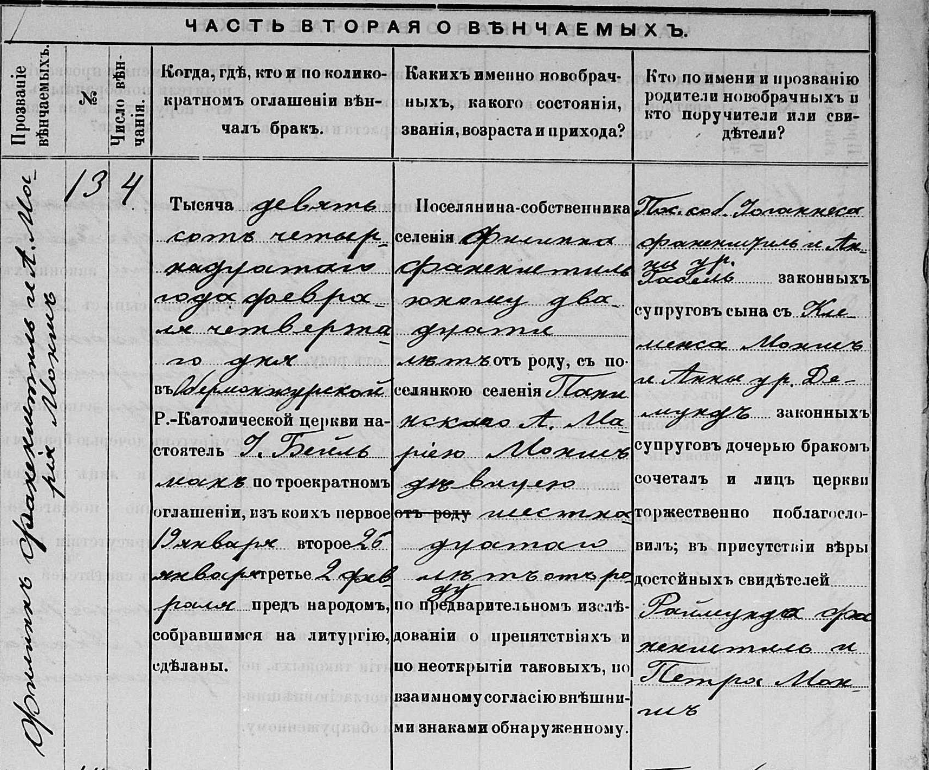 ЧАСТЬ ВТОРАЯ О ВѢНЧАЕМЫХЪ.
Прозваніе
вѣнчаемыхъ.
№
Число вѣн-
чанія.
Когда, гдѣ, кто и по колико-
кратномъ оглашеніи вѣн-
чалъ бракъ.
Какихъ именно новобрач-
ныхъ, какого состоянія,
званія, возраста и прихода?
Кто по имени и прозванію
родители новобрачныхъ и
кто поручители или сви-
дѣтели?
Филиппъ Факенштиль и А. Ма-
рія Мокишъ
13
4
Тысяча девять
сотъ четыр-
надцатаго
года февра-
ля четверта-
го дня
въ
Р.-Католической церкви на-
стоятель І. Бейль
манъ по троекратномъ
оглашеніи, изъ коихъ первое
19 января второе 26
января третье 2 фев
раля предъ народомъ,
собравшимся на литургію,
сдѣланы.
Поселянина-собственника
селенія Филиппа
Факенштиль
юному два-
дцати
лѣтъ отъ роду, съ по-
селянкою селенія Пани
нскаго А. Ма-
ріею Мокишъ
дѣвицею
отъ роду шестна
дцатаго
лѣтъ отъ ро
ду
по предварительномъ изслѣ-
дованіи о препятствіяхъ и
по неоткрытіи таковыхъ, по
взаимному согласію внѣшни-
ми знаками обнаруженному.
Пос. соб. Іоаннеса
Факенштиль и Ан-
ны ур.
Габель законныхъ
супруговъ сына съ Кли-
менса Мокишъ
и Анны ур. Де-
мундъ законныхъ
супруговъ дочерью бракомъ
сочеталъ и лицъ церкви
торжественно поблагосло-
вилъ; въ присутствіи вѣры
достойныхъ свидѣтелей
Раймунда Фа
кенштиль и
Петра Мок-
ишъ